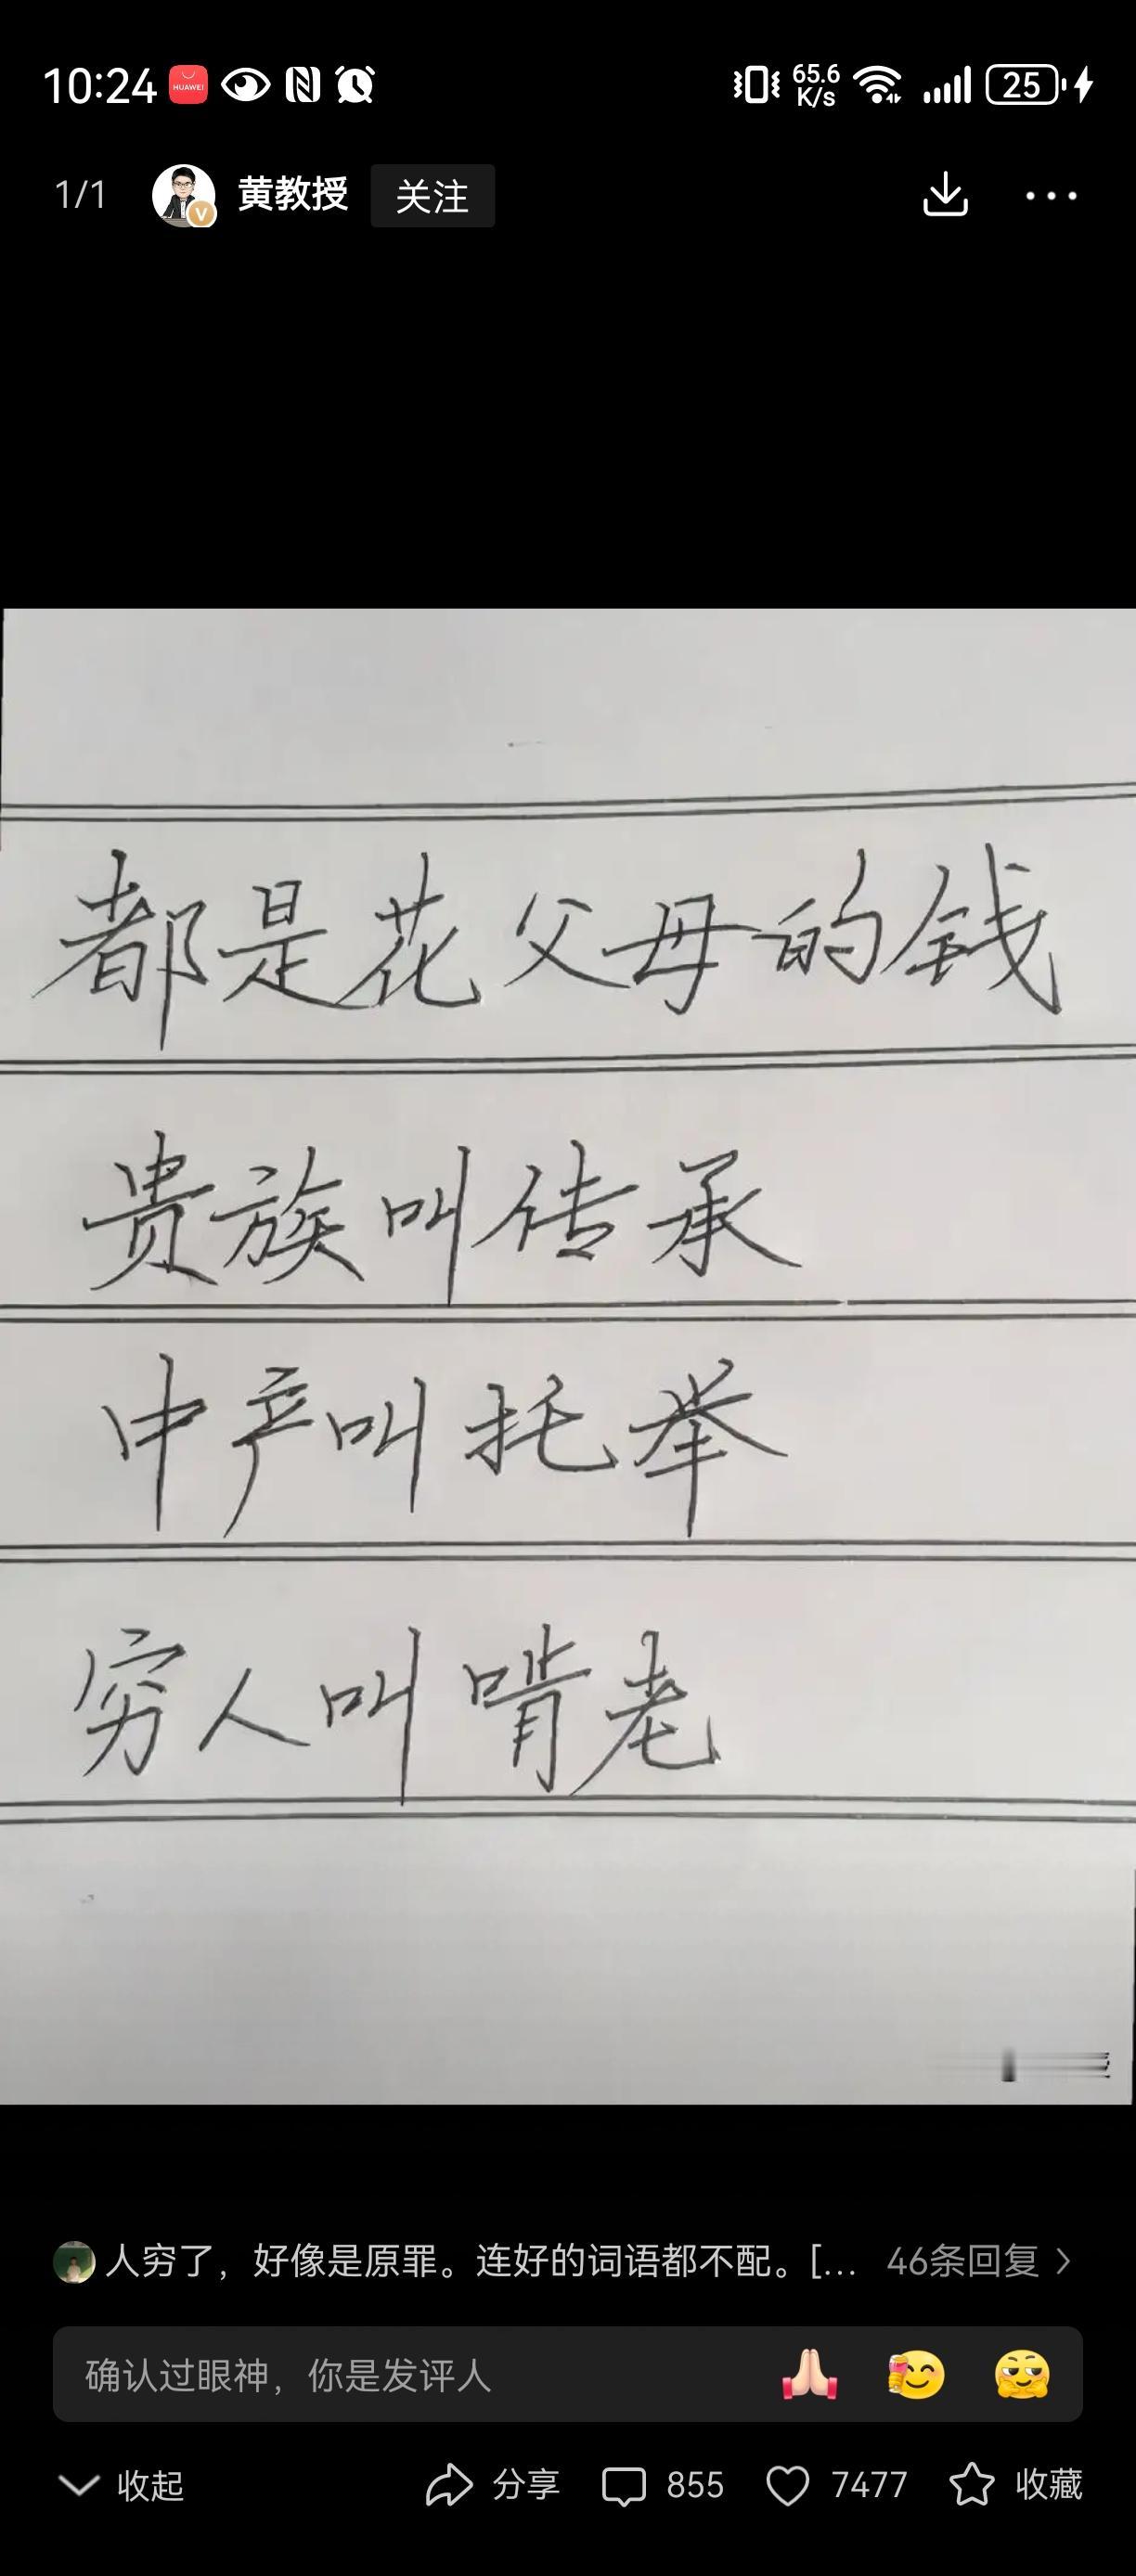 10:24 HUAWEI 65.6 K/s 25
1/1 黄教授 关注
都是花父母的钱
贵族叫传承
中产叫托举
穷人叫啃老
人穷了，好像是原罪。连好的词语都不配。[... 46条回复
确认过眼神，你是发评人
收起 分享 855 7477 收藏